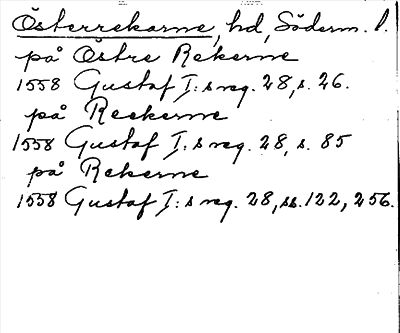 Österrekarne, hd, Söderm. l.
på Östre Rekerne
1558 Gustaf I:s reg. 28, s. 26.
på Reekerne
1558 Gustaf I:s reg. 28, s. 85
på Rekerne
1558 Gustaf I:s reg. 28, ss. 122, 256.